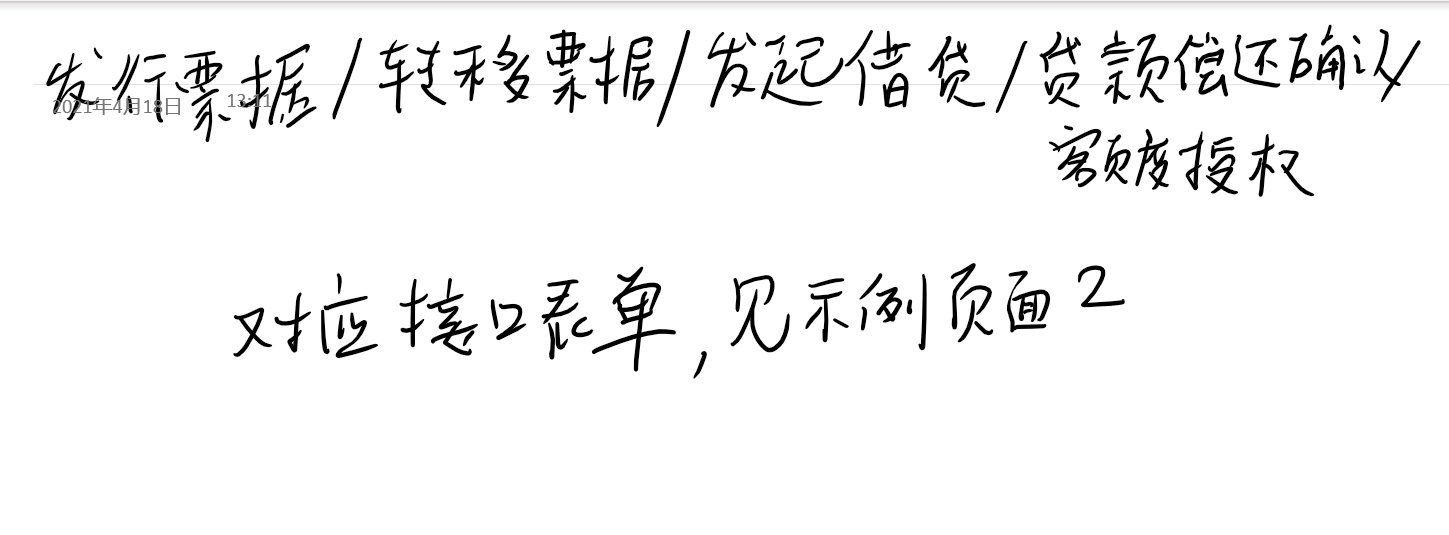 发行票据/转移票据/发起借贷/贷款偿还确认/
2021年4月18日 13:11
额度授权
对应接口表单,见示例页面2